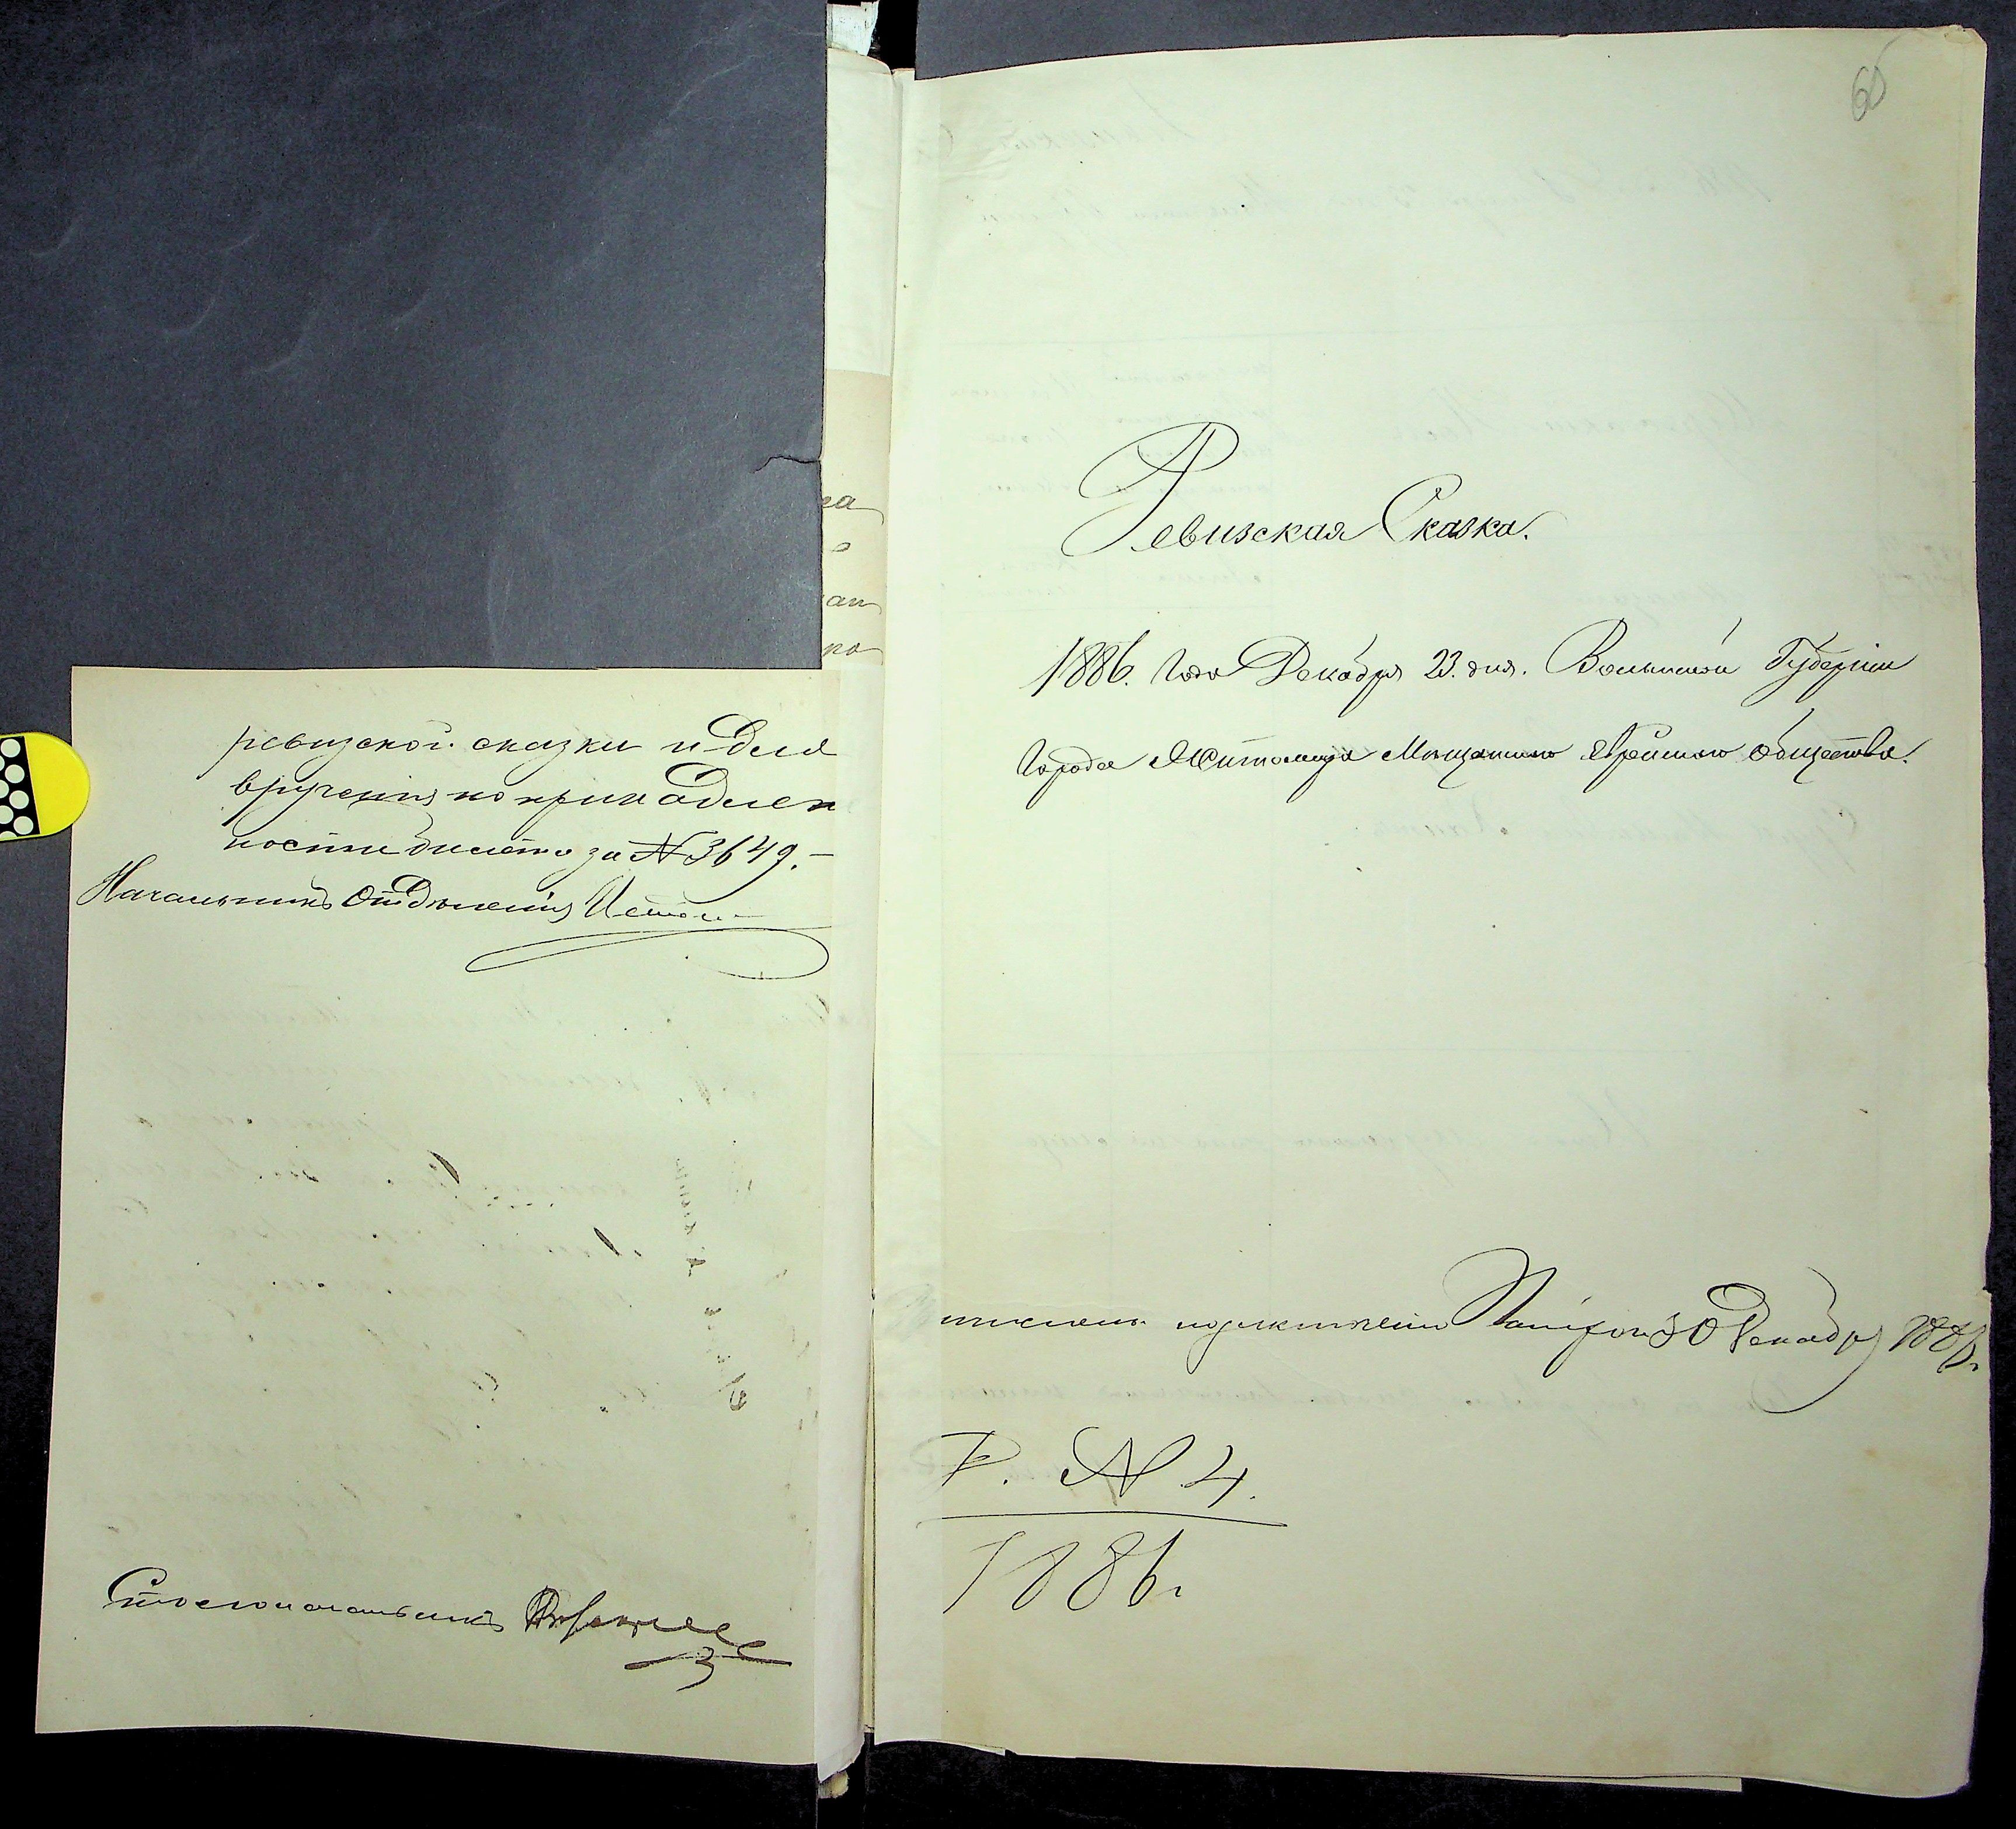 ревизской сказки и для
врученія по принадлеж
ности билета за № 3649.—
Начальникъ Отдѣленія
Столоначальникъ
60
Ревизская Сказка.
1886. Года Декабря 23. дня. Волынской Губерніи
Города Житомира Мѣщанскаго Еврейскаго Общества.
30 Декабря 1886 г.
Р. № 4.
1886 г